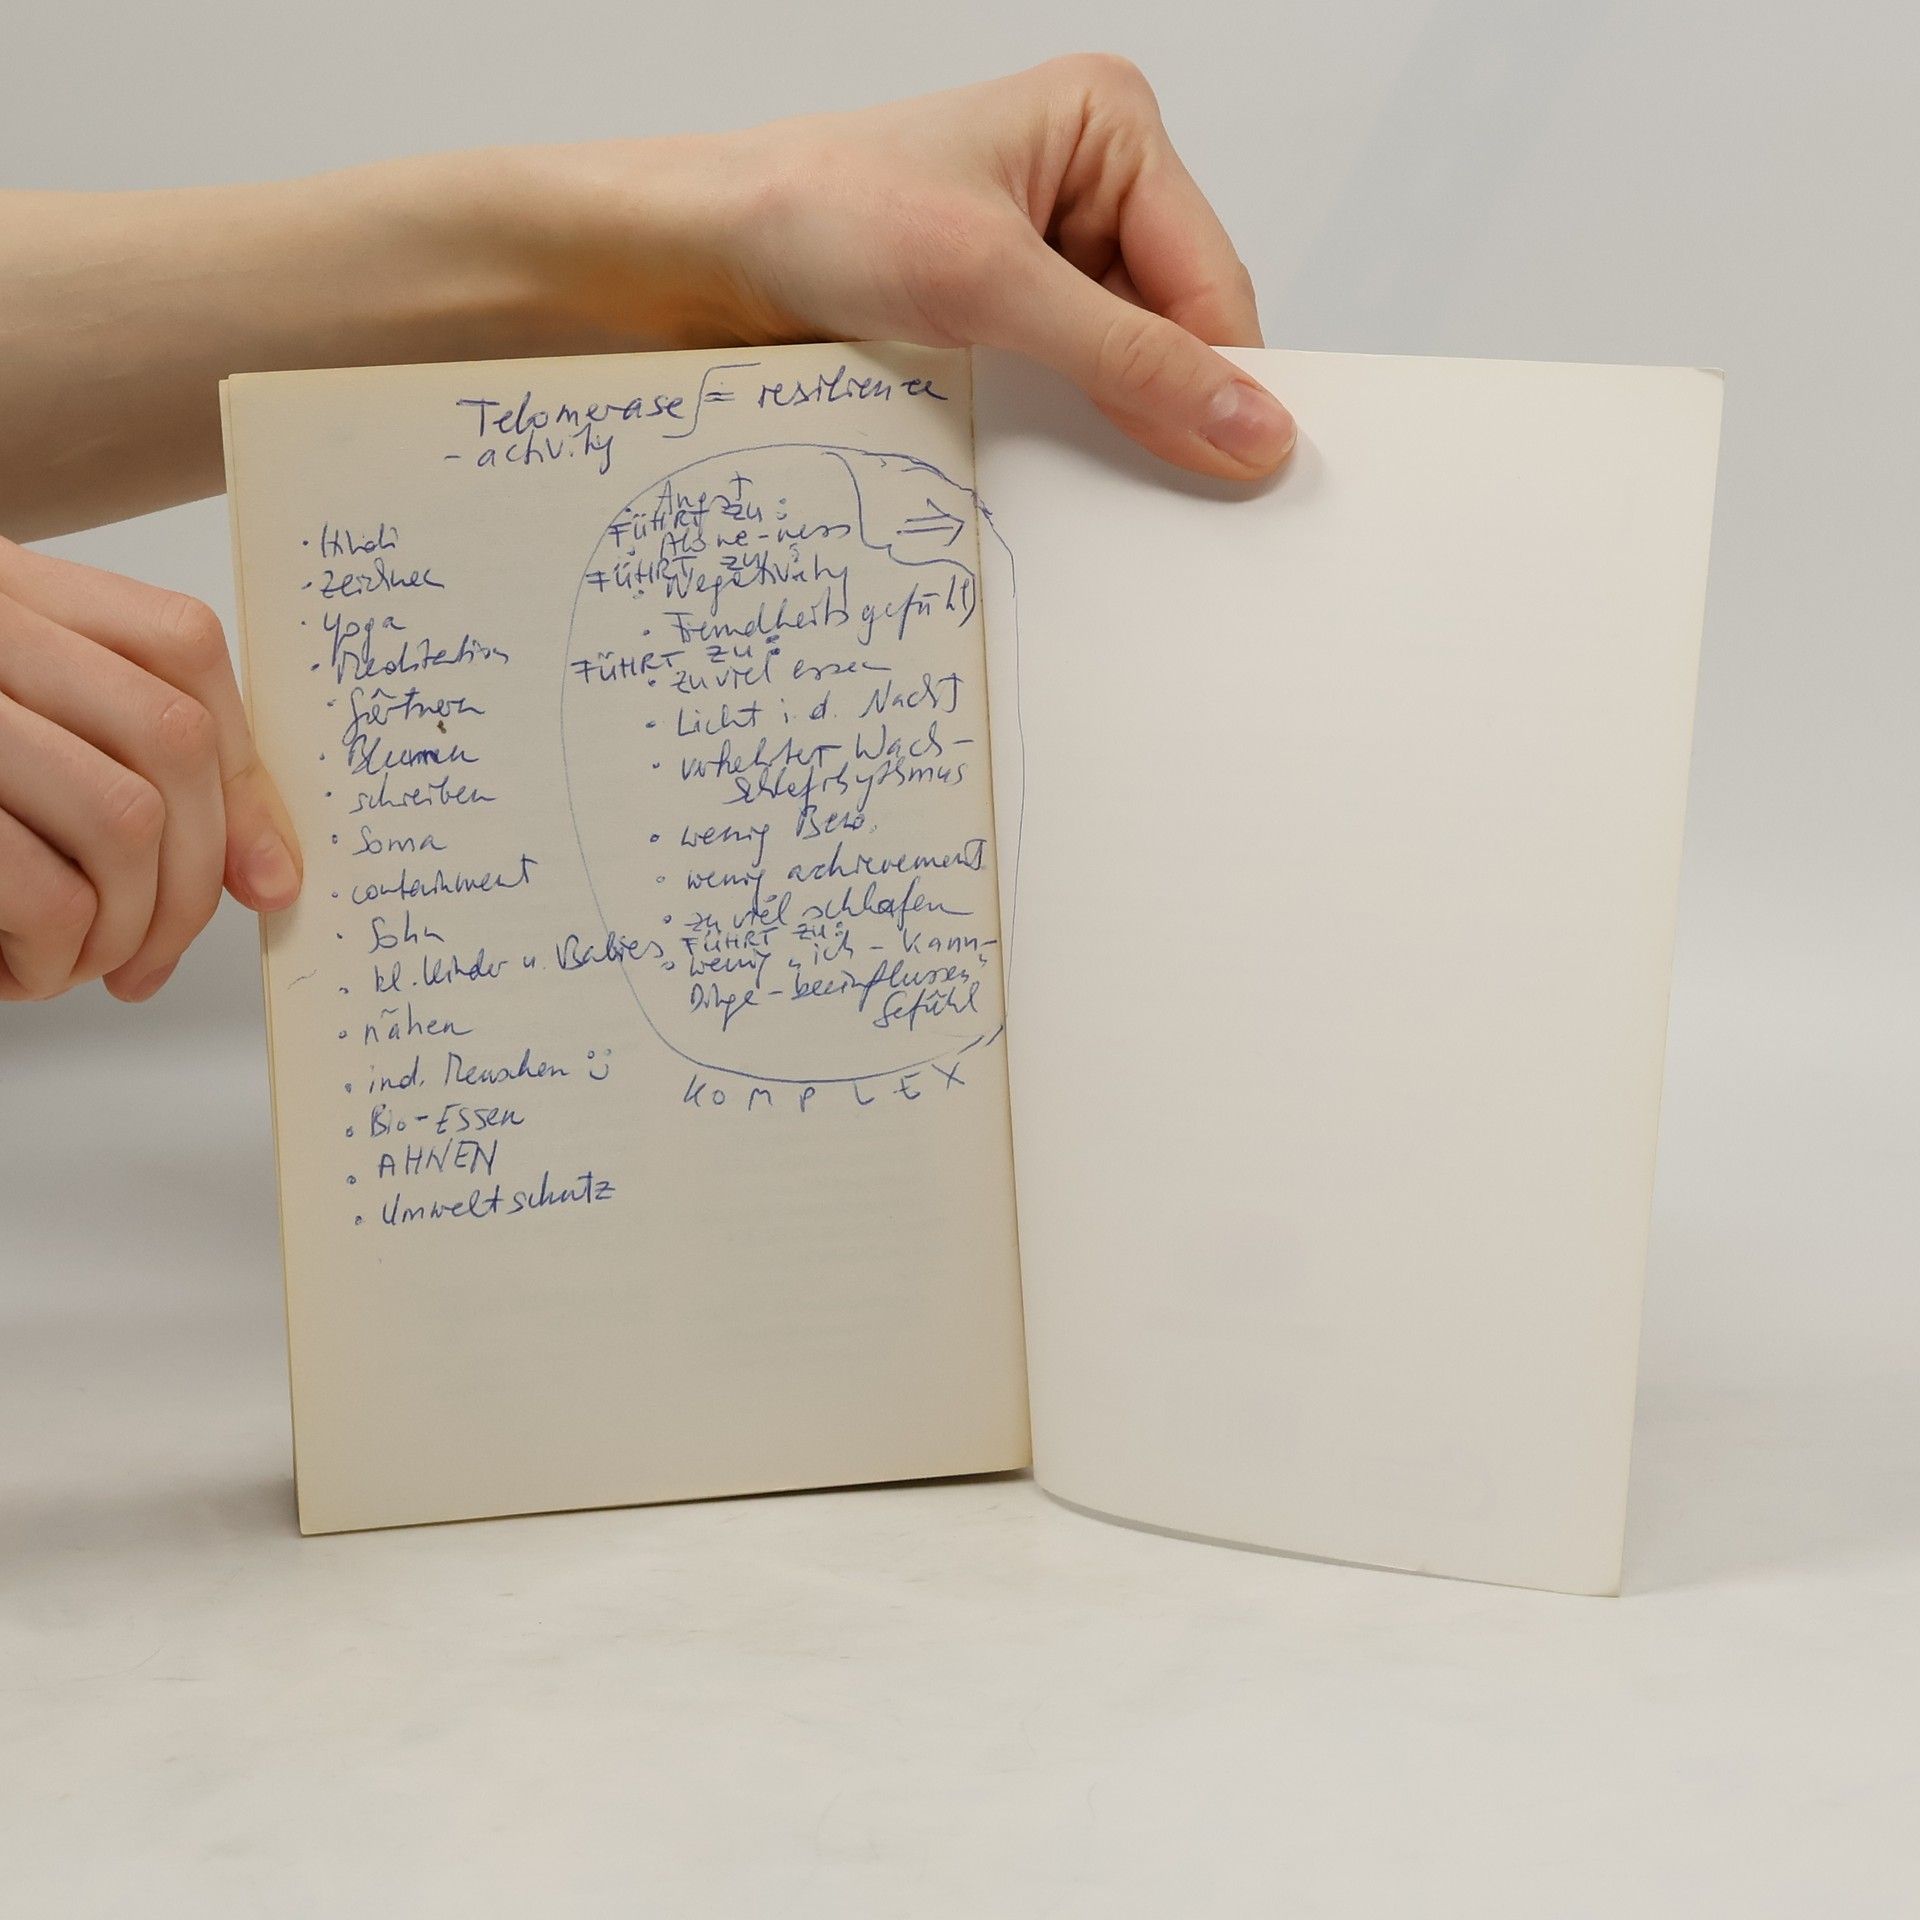 Telomerase = resilience
- activity
• Hindi
• zeichnen
• Yoga
• Meditation
• Gärtnern
• Blumen
• schreiben
• Soma
• containment
• Sohn
• kl. Kinder u. Babies
• nähen
• ind. Menschen
• Bio-Essen
• AHNEN
• Umweltschutz
• Angst
FÜHRT ZU:
• Alone-ness
FÜHRT ZU:
• Negativity
• Fremdheitsgefühl)
FÜHRT ZU:
• zuviel essen
• Licht i. d. Nacht
• verkehrter Wach-
Schlafrhythmus
• wenig Bew.
• wenig achievement
• zu viel schlafen
FÜHRT ZU:
• wenig „ich-kann-
Dinge-beeinflussen"
Gefühl
⇒
KOMPLEX